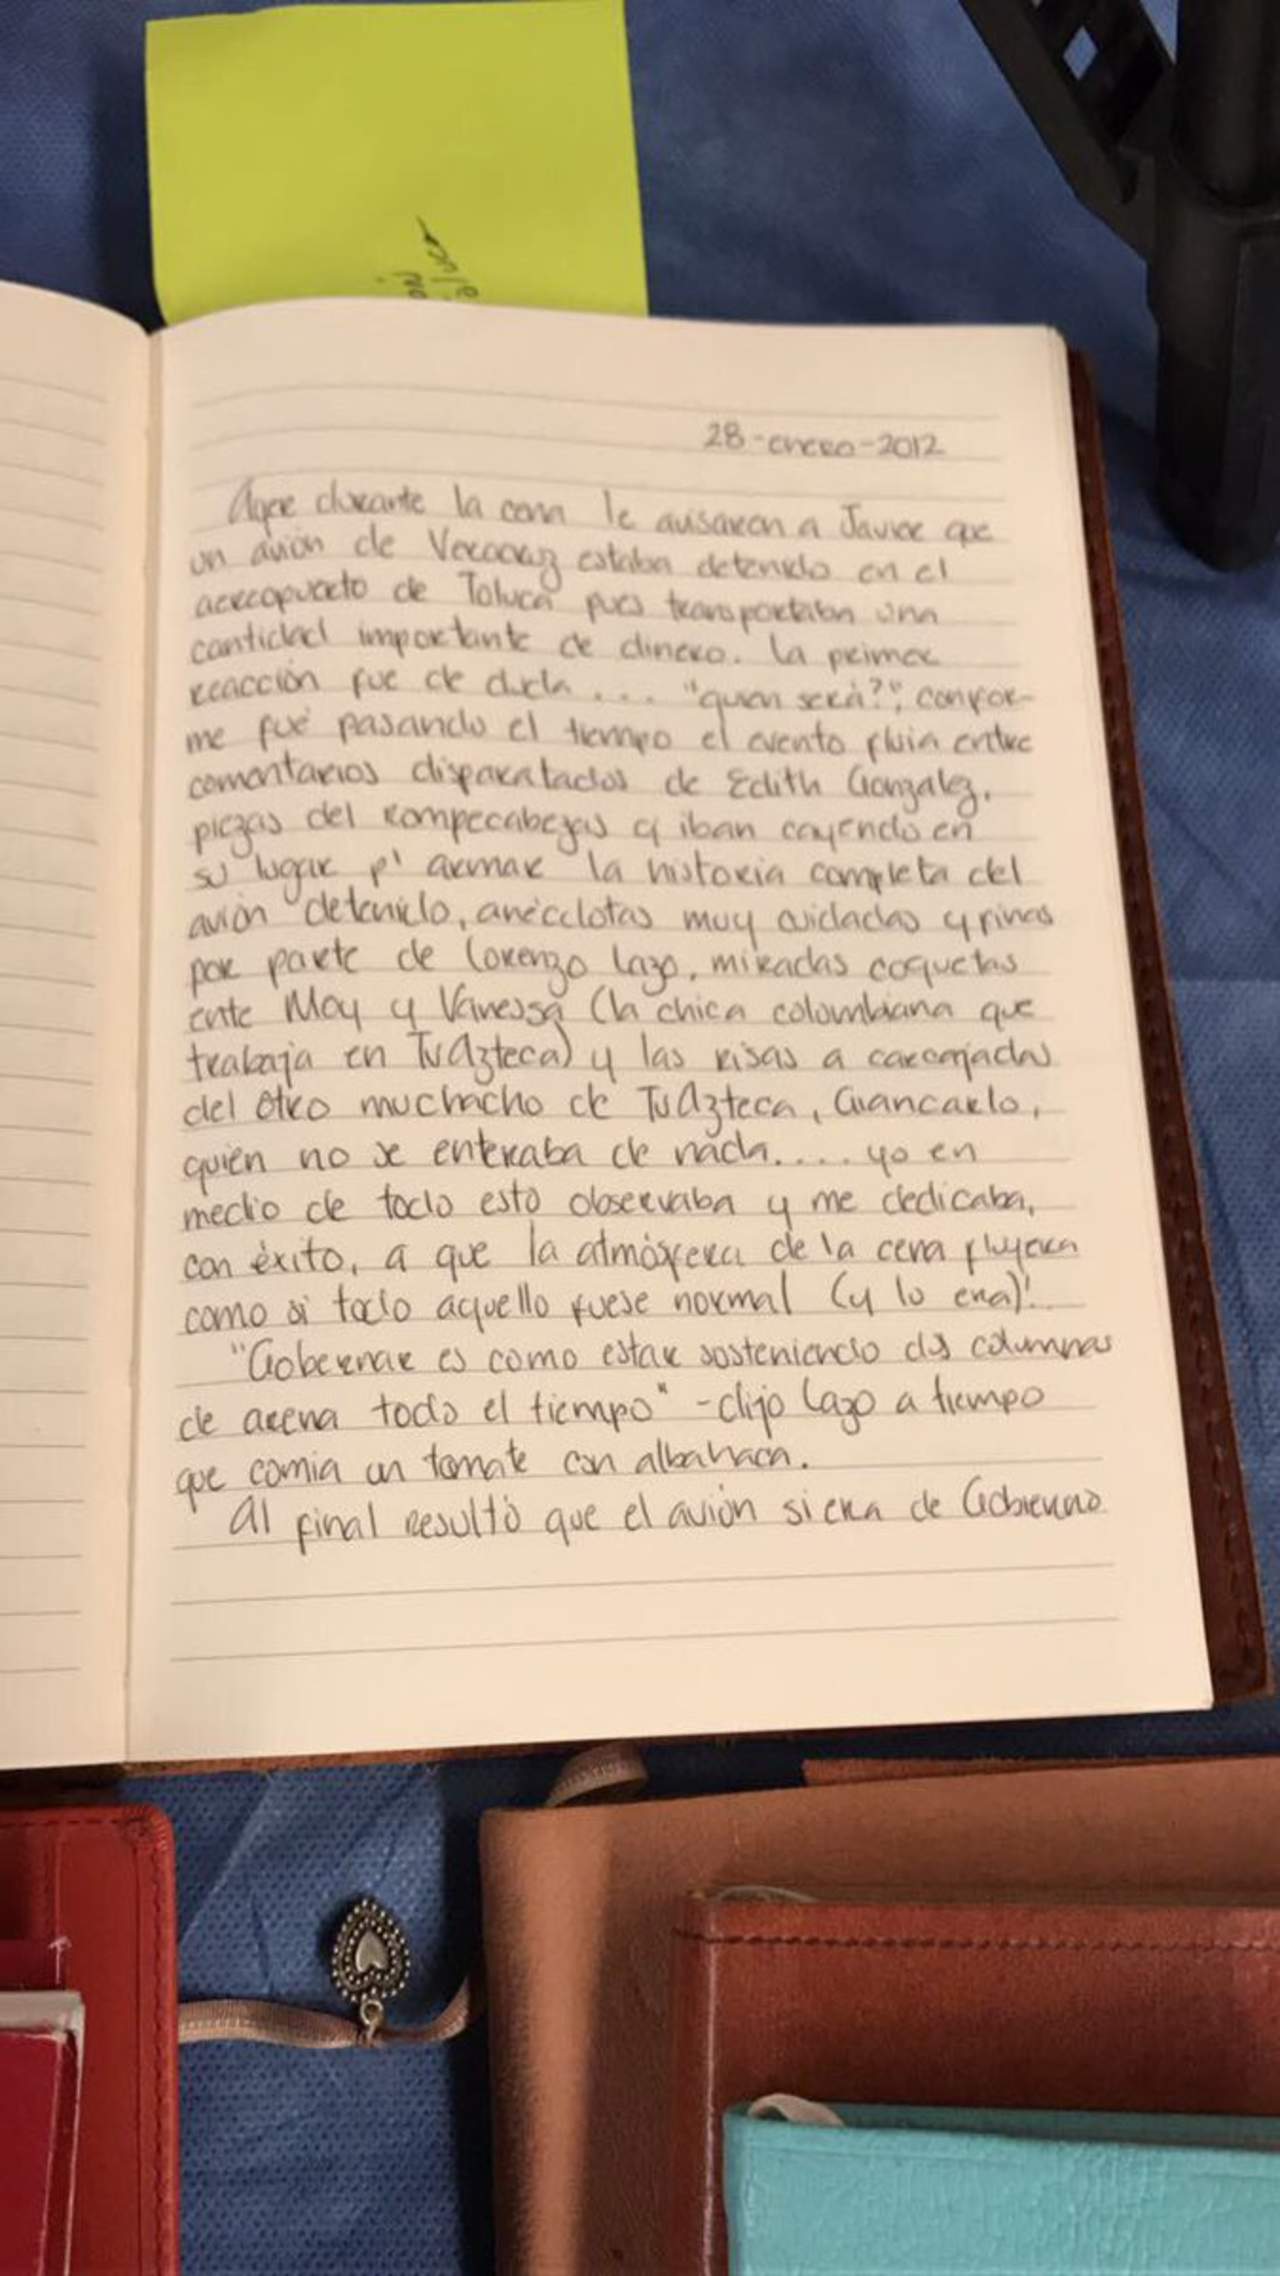 28-enero-2012
Ayer durante la cena le avisaron a Javier que
un avión de Veracruz estaba detenido en el
aereopuerto de Toluca pues transportaban una
cantidad importante de dinero. La primer
reacción fue de duda.... "quien será?", confor-
me fué pasando el tiempo el evento fluia entre
comentarios disparatados de Edith Gonzalez,
piezas del rompecabezas q iban cayendo en
su lugar p' armar la historia completa del
avión detenido, anécdotas muy cuidadas y finas
por parte de Lorenzo Lazo, miradas coquetas
ente Moy y Vanessa (la chica colombiana que
trabaja en TvAzteca) y las risas a carcajadas
del otro muchacho de TvAzteca, Giancarlo,
quién no se enteraba de nada.... yo en
medio de todo esto observaba y me dedicaba,
con éxito, a que la atmósfera de la cena fluyera
como si todo aquello fuese normal (y lo era)!..
"Gobernar es como estar sosteniendo dos columnas
de arena todo el tiempo" -dijo Lazo a tiempo
que comia un tomate con albahaca.
Al final resultó que el avión si era de Gobierno